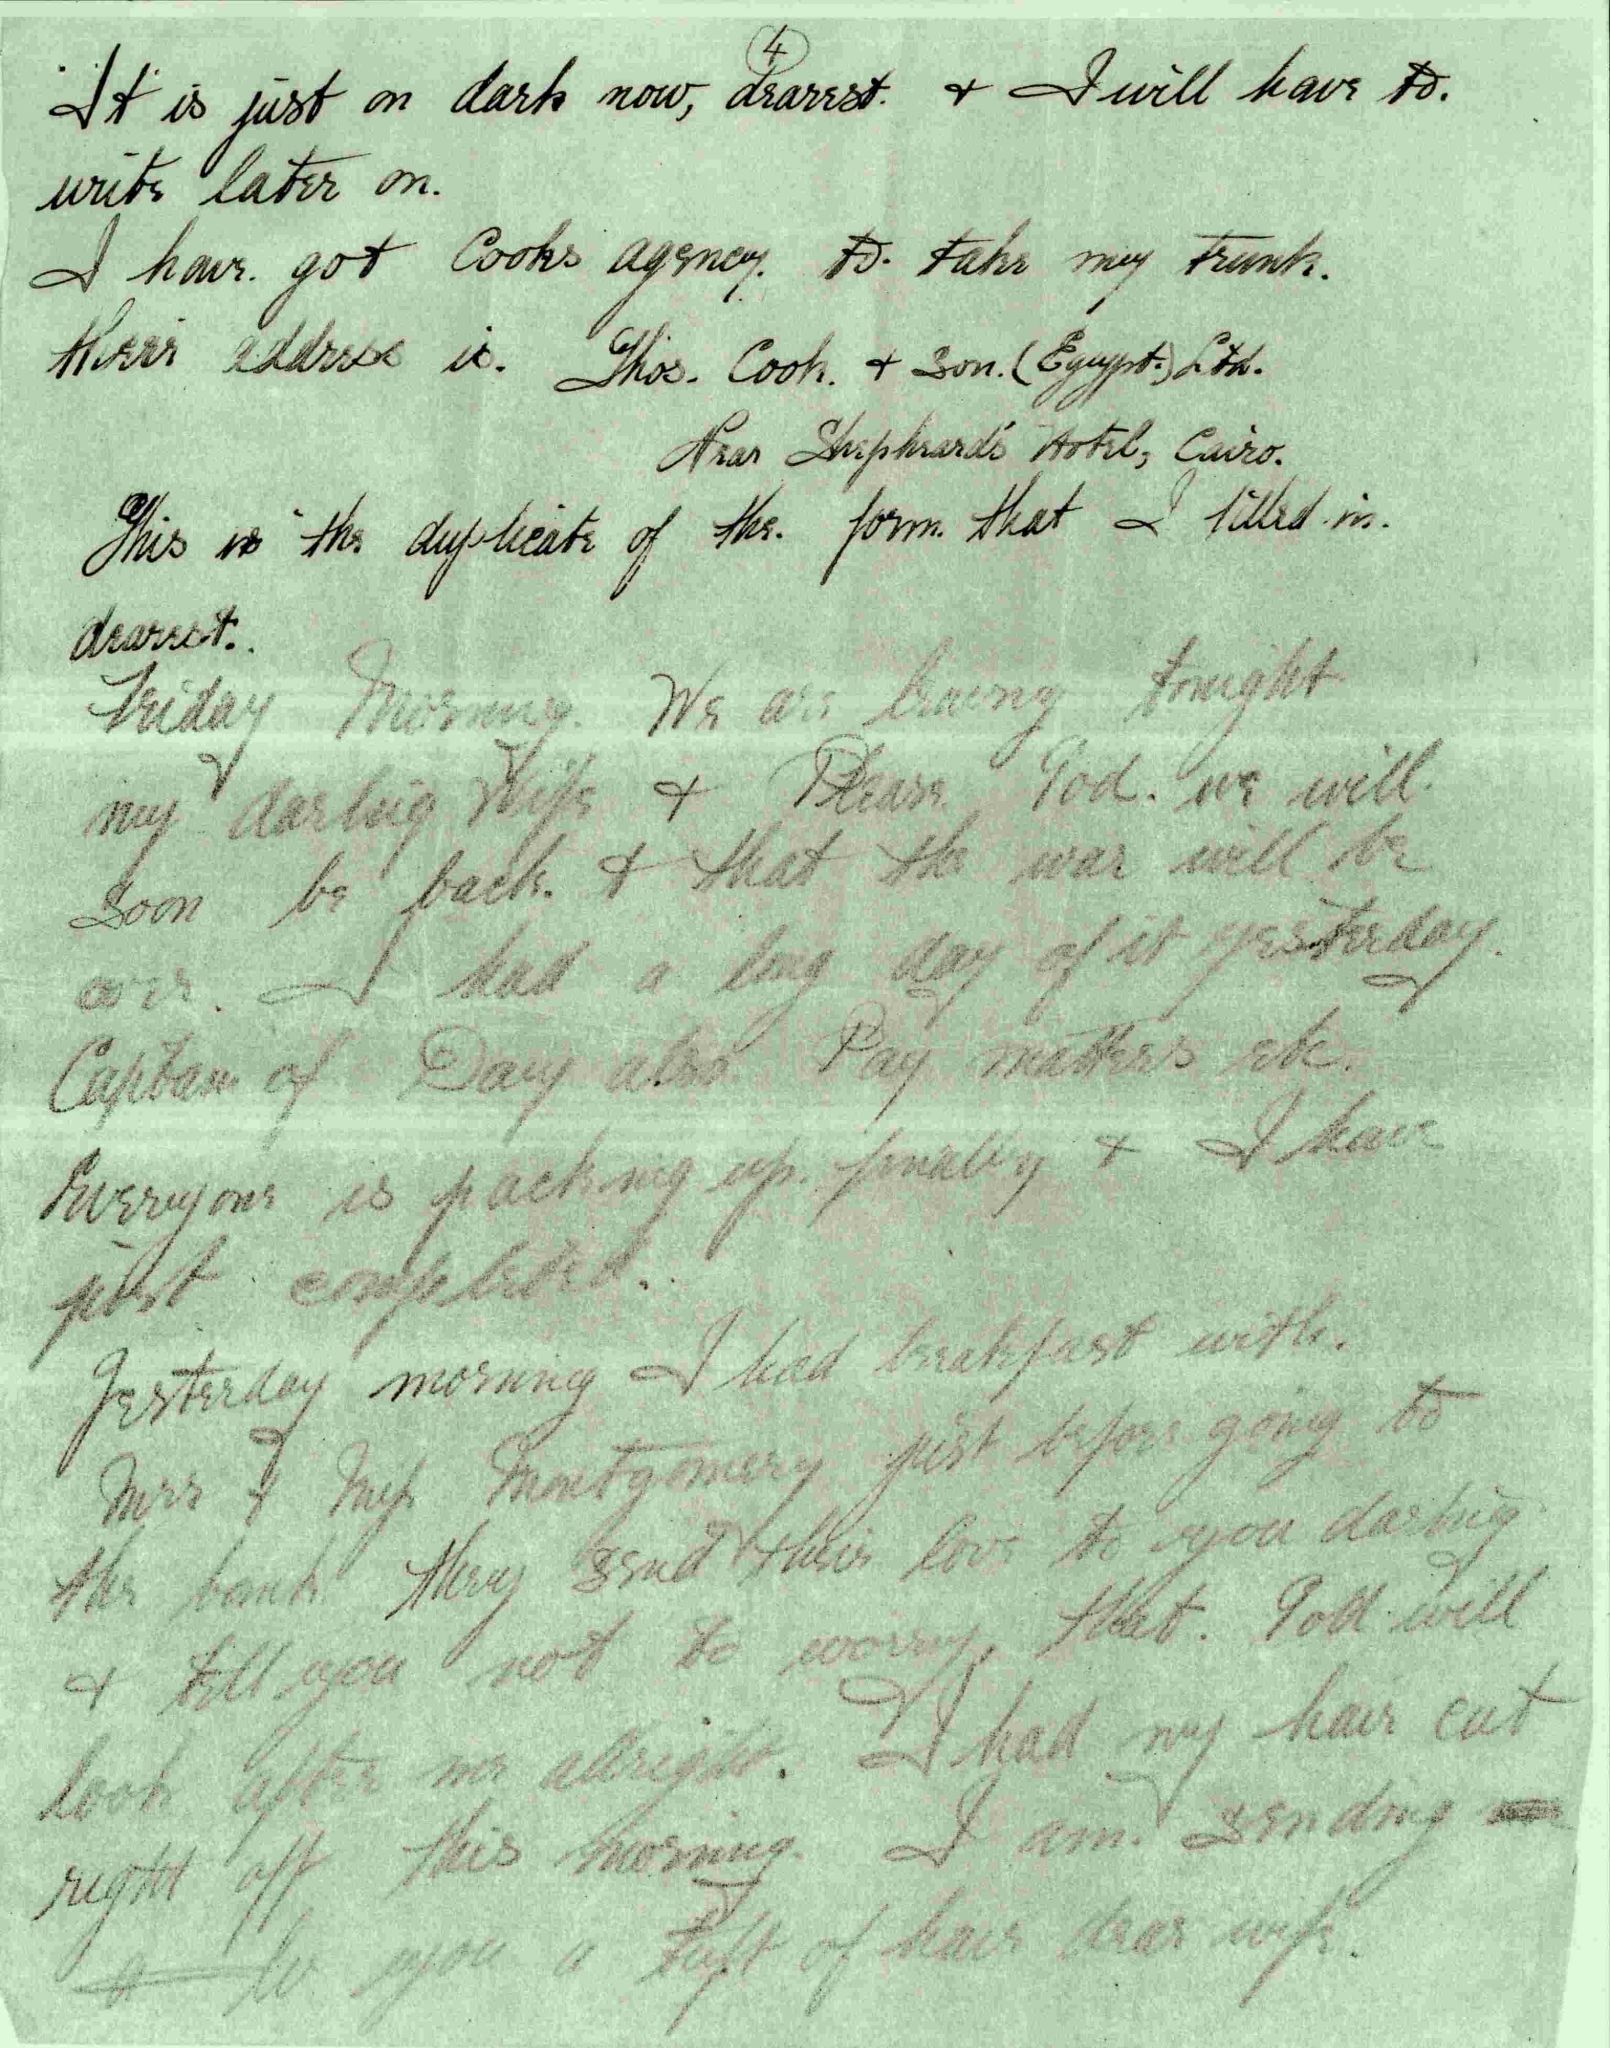 4
It is just on dark now, dearest. & I will have to.
write later on.
I have. got Cooks agency. to. take my trunk.
their address is. Thos. Cook. & Son. (Egypt.) Ltd.
Near Shepheard's Hotel, Cairo.
This is the duplicate of the. form. that I filled in.
dearest.
Friday Morning. We are leaving tonight
my darling Wife & Please God. we will.
soon be back. & that the war will be
over. I had a long day of it yesterday.
Captain of Day also Pay matters etc.
Everyone is packing up. finally & I have
just completed.
Yesterday morning I had breakfast with.
Mrs & Miss Montgomery just before going to
the bank. they send their love to you darling
& tell you not to worry, that. God will
look after me allright. I had my hair cut
right off this morning. I am. sending
to you a tuft of hair dear wife.